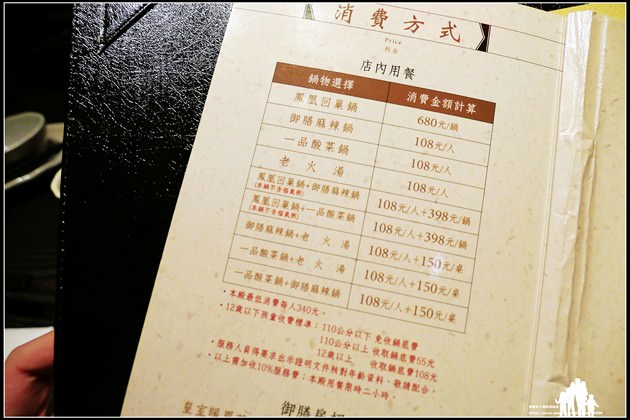 消費方式
Price
料金
店內用餐
鍋物選擇 消費金額計算
鳳凰回巢鍋 680元/鍋
御膳麻辣鍋 108元/人
一品酸菜鍋 108元/人
老火湯 108元/人
鳳凰回巢鍋+御膳麻辣鍋 108元/人+398元/鍋
(本鍋不含福氣粥)
鳳凰回巢鍋+一品酸菜鍋 108元/人+398元/鍋
(本鍋不含福氣粥)
御膳麻辣鍋+老火湯 108元/人+150元/桌
一品酸菜鍋+老火湯 108元/人+150元/桌
一品酸菜鍋+御膳麻辣鍋 108元/人+150元/桌
•本殿最低消費每人340元。
•12歲以下孩童收費標準:110公分以下 免收鍋底費
110公分以上 收取鍋底費55元
12歲以上 收取鍋底費108元
•服務人員得要求出示證明文件核對年齡資料,敬請配合。
•以上需加收10%服務費;本殿用餐限時二小時。